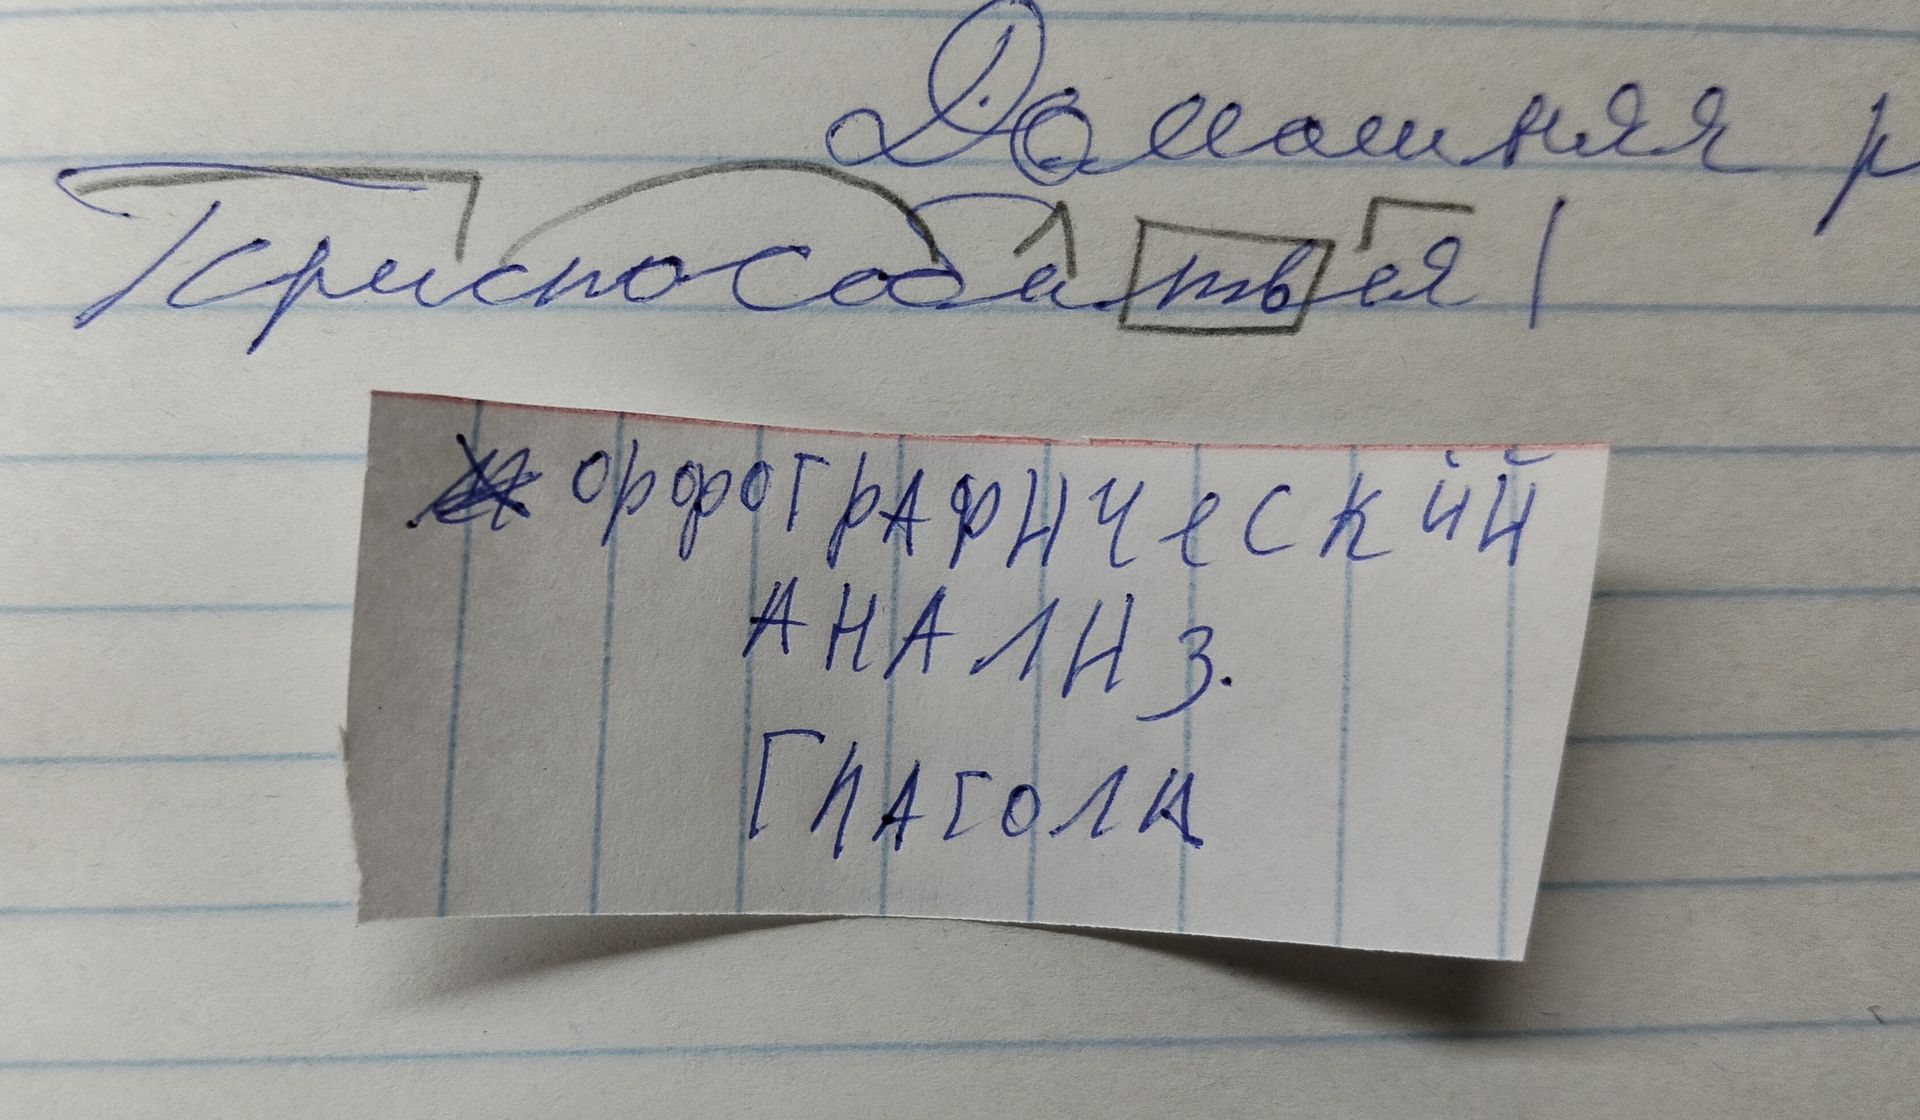 Домашняя р
Приспособатвея
ОРФОГРАФИЧеСКИЙ
АНАЛИЗ.
ГЛАГОЛА